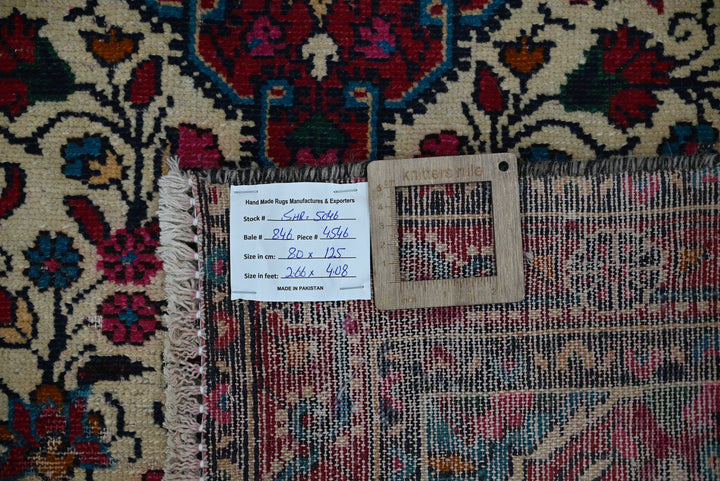 Hand Made Rugs Manufactures & Exporters
Stock # SHR 5046
Bale # 846 Piece # 4546
Size in cm: 80 x 125
Size in feet: 2.66 x 4.08
MADE IN PAKISTAN
knitter's mile